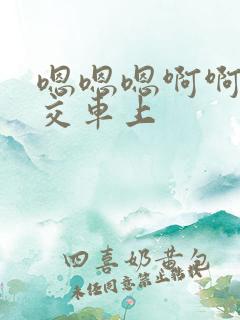 嗯嗯嗯啊啊
交车上
四喜奶黄包
未经同意禁止转载